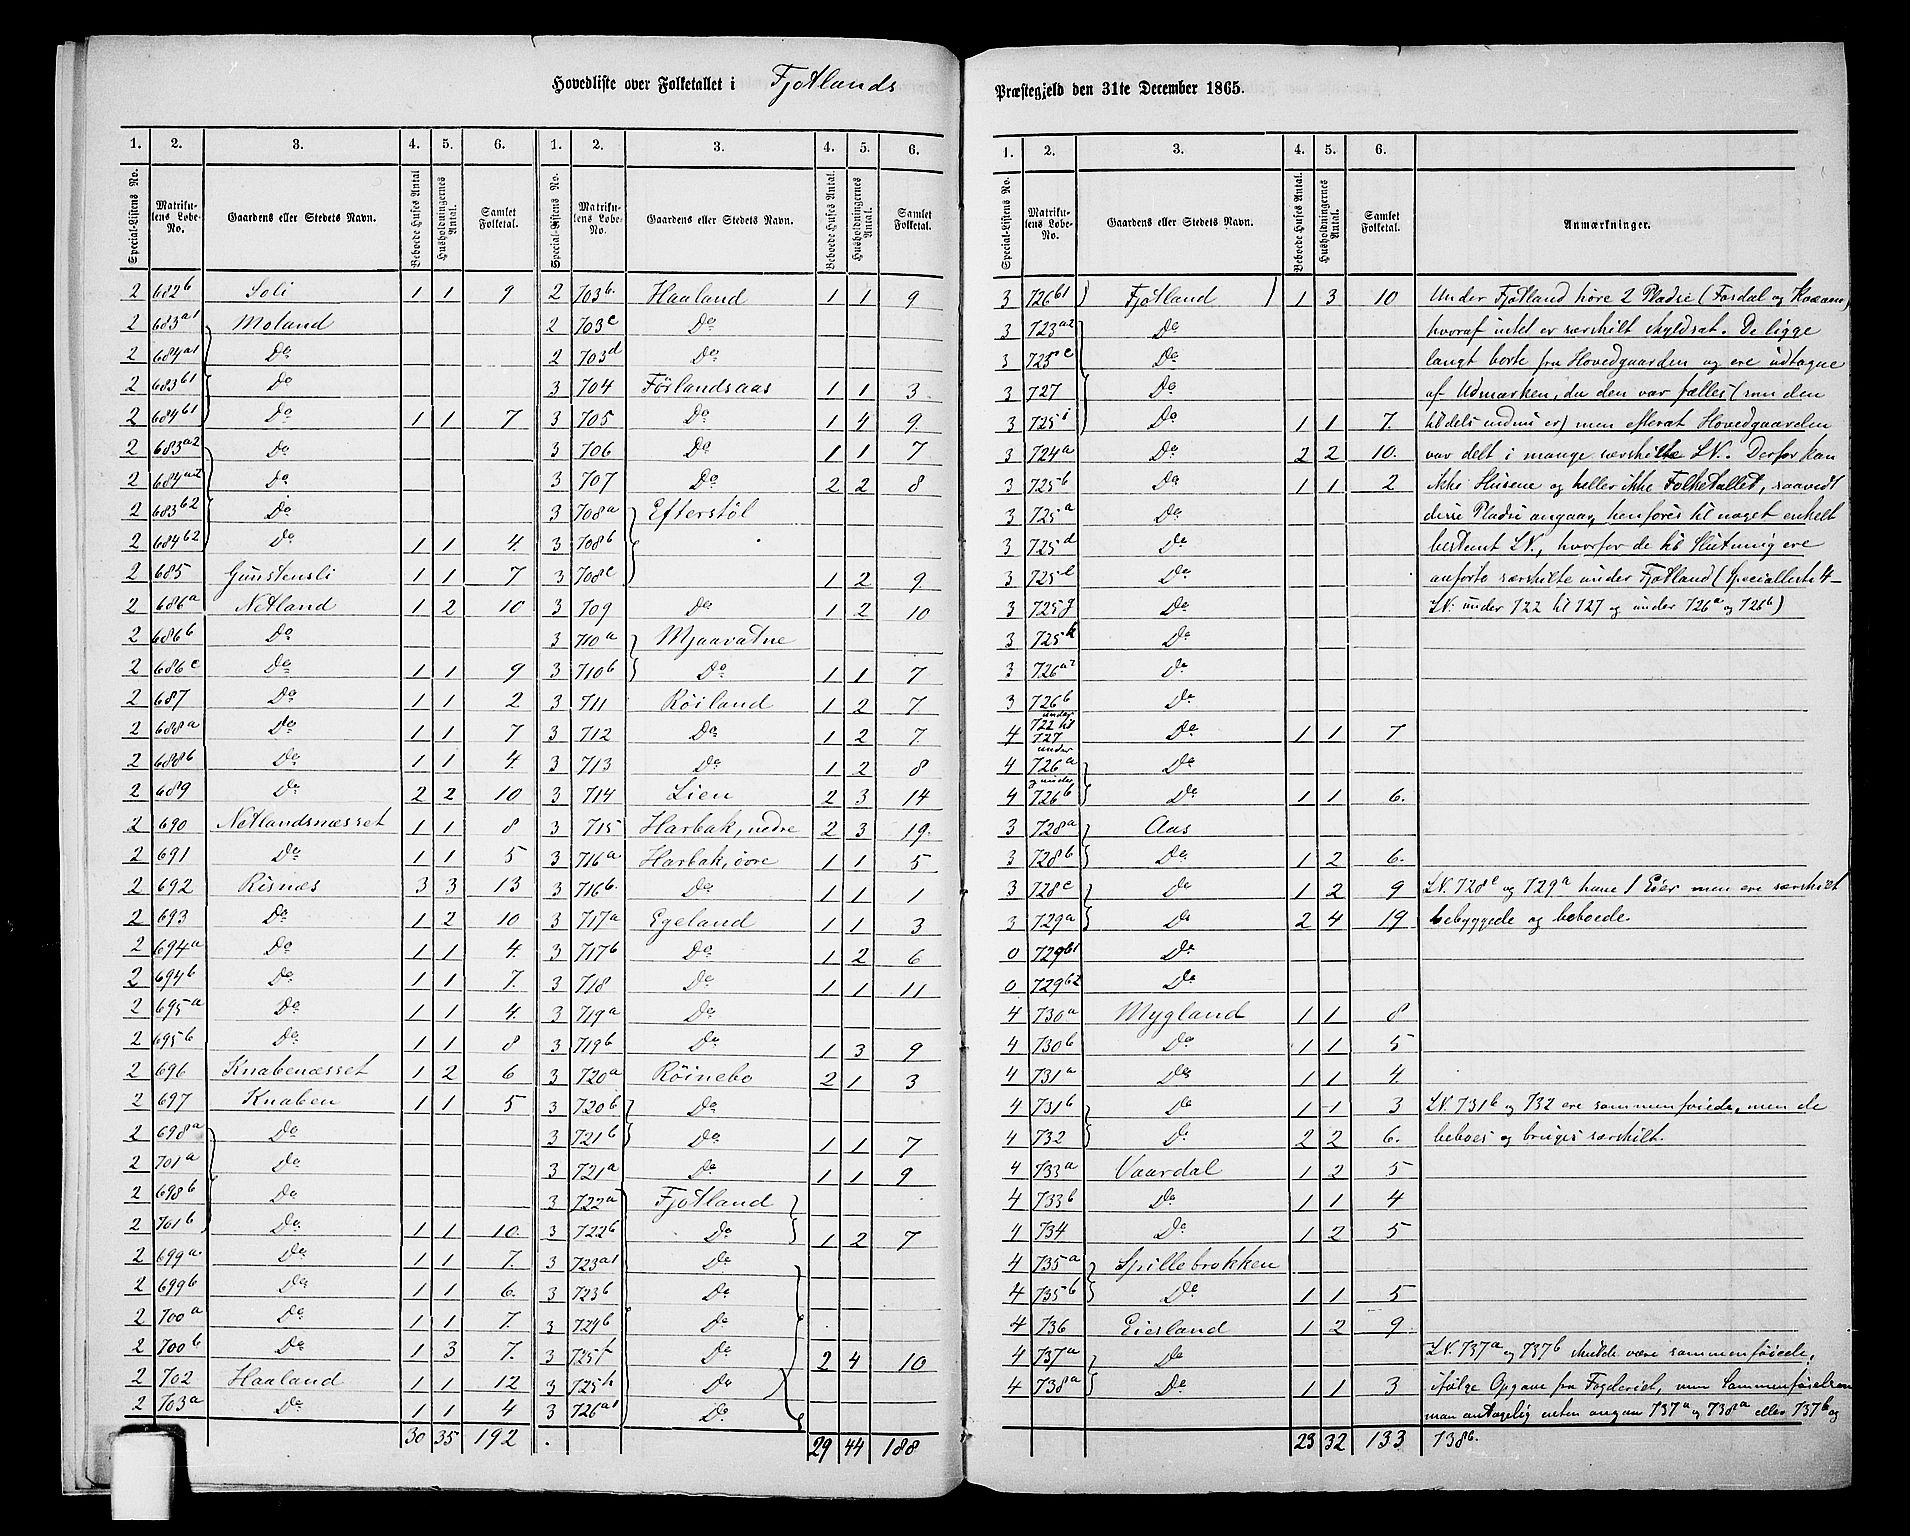 Hovedliste over Folketallet i Fjotlands
1. 2. 3. 4. 5. 6. 1. 2. 3. 4. 5. 6.
Special-Listens No. Matrikulens Løbe-No. Gaardens eller Stedets Navn. Beboede Huses Antal Husholdningernes Antal. Samlet Folketal. Special-Listens No. Matrikulens Løbe-No. Gaardens eller Stedets Navn. Beboede Huses Antal. Husholdningernes Antal. Samlet Folketal.
2 682b Soli 1 1 9
2 683a1 Moland
2 684a1 Do
2 683b1 Do
2 684b1 Do 1 1 7
2 683a2 Do
2 684a2 Do
2 683b2 Do
2 684b2 Do 1 1 4.
2 685 Gunstensli 1 1 7
2 686a Netland 1 2 10
2 686b Do
2 686c Do 1 1 9
2 687 Do 1 1 2
2 688a Do 1 1 7
2 688b Do 1 1 4.
2 689 Do 2 2 10
2 690 Netlandsnæsset 1 1 8
2 691 Do 1 1 5
2 692 Risnæs 3 3 13
2 693 Do 1 2 10
2 694a Do 1 1 4.
2 694b Do 1 1 7.
2 695a Do 1 1 4.
2 695b Do 1 1 8
2 696 Knabenæsset 1 2 6
2 697 Knaben 1 1 5
2 698a Do
2 701a Do
2 698b Do
2 701b Do 1 1 10.
2 699a Do 1 1 7.
2 699b Do 1 1 6.
2 700a Do 1 1 7.
2 700b Do 1 3 7.
2 702 Haaland 1 1 12
2 703a Do 1 1 4
30 35 192
2 703b. Haaland 1 1 9
2 703c Do
2 703d Do
3 704 Førlandsaas 1 1 3.
3 705 Do 1 4 9.
3 706 Do 1 1 7
3 707 Do 2 2 8
3 708a Efterstøl
3 708b
3 708c 1 2 9
3 709 Do 1 2 10
3 710a Mjaavatne
3 710b Do 1 1 7
3 711 Røiland 1 2 7
3 712 Do 1 2 7
3 713 Do 1 2 8
3 714 Lien 2 3 14
3 715 Harbak, nedre 2 3 19.
3 716a Harbak, øvre 1 1 5
3 716b. Do 1 1 1
3 717a Egeland 1 1 3
3 717b Do 1 2 6
3 718 Do 1 1 11
3 719a Do
3 719b Do 1 3 9
3 720a Røinebo 2 1 3
3 720b Do
3 721b Do 1 1 7
3 721a Do 1 1 9
3 722a Fjotland
3 722b Do 1 2 7
3 723a1 Do
3 723b Do
3 724b Do
3 725f Do 2 4 10
3 725h Do
3 726a1 Do
29 44 188
Præstegjeld den 31te December 1865.
1. 2. 3. 4. 5. 6.
Special-Listens No. Matrikulens Løbe-No. Gaardens eller Stedets Navn. Beboede Huses Antal. Husholdningernes Antal. Samlet Folketal. Anmærkninger.
3 726b1 Fjotland 1 3 10 Under Fjotland høre 2 Pladse (Fosdal og Kvæven)
3 723a2 Do hvoraf intet er særskilt skyldsat. De ligge
3 725c Do langt borte fra Hovedgaarden og ere udtagne
3 727 Do af Udmarken, da den var fælles (som den
3 725i Do 1 1 7. tildels endnu er) men efterat Hovedgaarden
3 724a Do 2 2 10. var delt i mange særskilte LN. Derfor kan
3 725b Do 1 1 2 ikke Husene og heller ikke Folketallet, saavidt
3 725a Do disse Pladse angaar, henføres til noget enkelt
3 725d Do bestemt LN., hvorfor de til Slutning ere
3 725e Do anførte særskilte under Fjotland (Specialleste 4-
3 725g Do LN: under 722 til 727 og under 726a og 726b)
3 725k Do
3 726a2 Do
3 726b Do
4 under 722 til 727 Do 1 1 7
4 under 726a Do
4 og under 726b Do 1 1 6.
3 728a Aas
3 728b Do 1 2 6.
3 728c Do 1 2 9 LN. 728c og 729a have 1 Eier men ere særskilt
3 729a Do 2 4 19 bebyggede og beboede.
0 729b1 Do
0 729b2 Do
4 730a Mygland 1 1 8
4 730b Do 1 1 5
4 731a Do 1 1 4.
4 731b Do 1 1 3 LN. 731b og 732 ere sammenføiede, men de
4 732 Do 2 2 6. beboes og bruges særskilt.
4 733a Vaardal 1 2 5
4 733b Do 1 1 4
4 734 Do 1 2 5
4 735a Spillebrokken
4 735b Do 1 1 5
4 736 Eiesland 1 2 9
4 737a Do LN. 737a og 737b skulde være sammenføiede,
4 738a Do 1 1 3 ifølge Opgave fra Fogderiet, men Sammenføielsen
maa antagelig enten angaa 737a og 738a eller 737b og
23 32 133 738b.